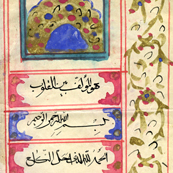 هو المؤلف بين القلوب
بسم الله الرحمن الرحيم
الحمد لله الذي احل النكاح